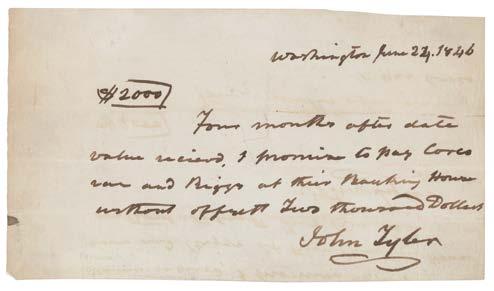 Washington June 24, 1846
$2000
Four months after date
value recieved, I promise to pay Corco
ran and Riggs at their Banking House
without offsett Two thousand Dollars
John Tyler